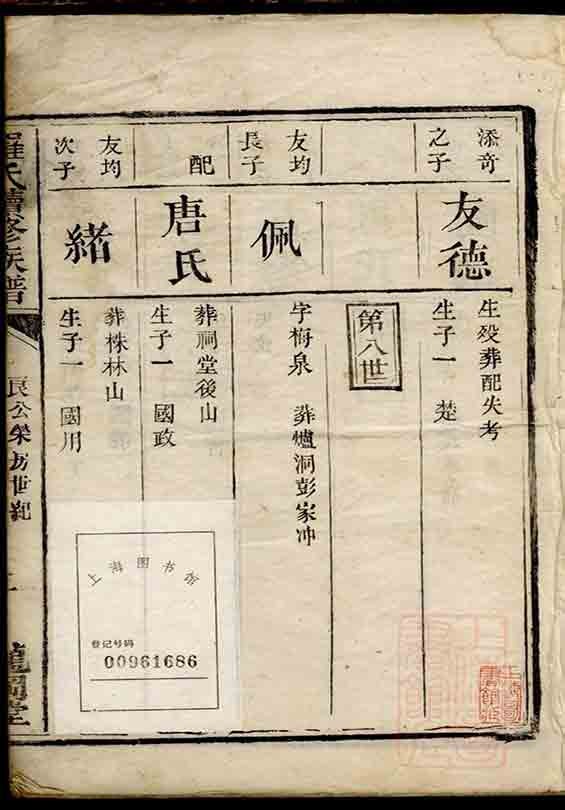 添奇
之子
友德
生殁葬配失考
生子一 楚
第八世
友均
長子
佩
字梅泉 葬爐洞彭家冲
配
唐氏
葬祠堂後山
生子一 國政
友均
次子
緒
葬株林山
生子一 國用
羅氏續修族譜
良公榮房世紀
登记号码
00961686